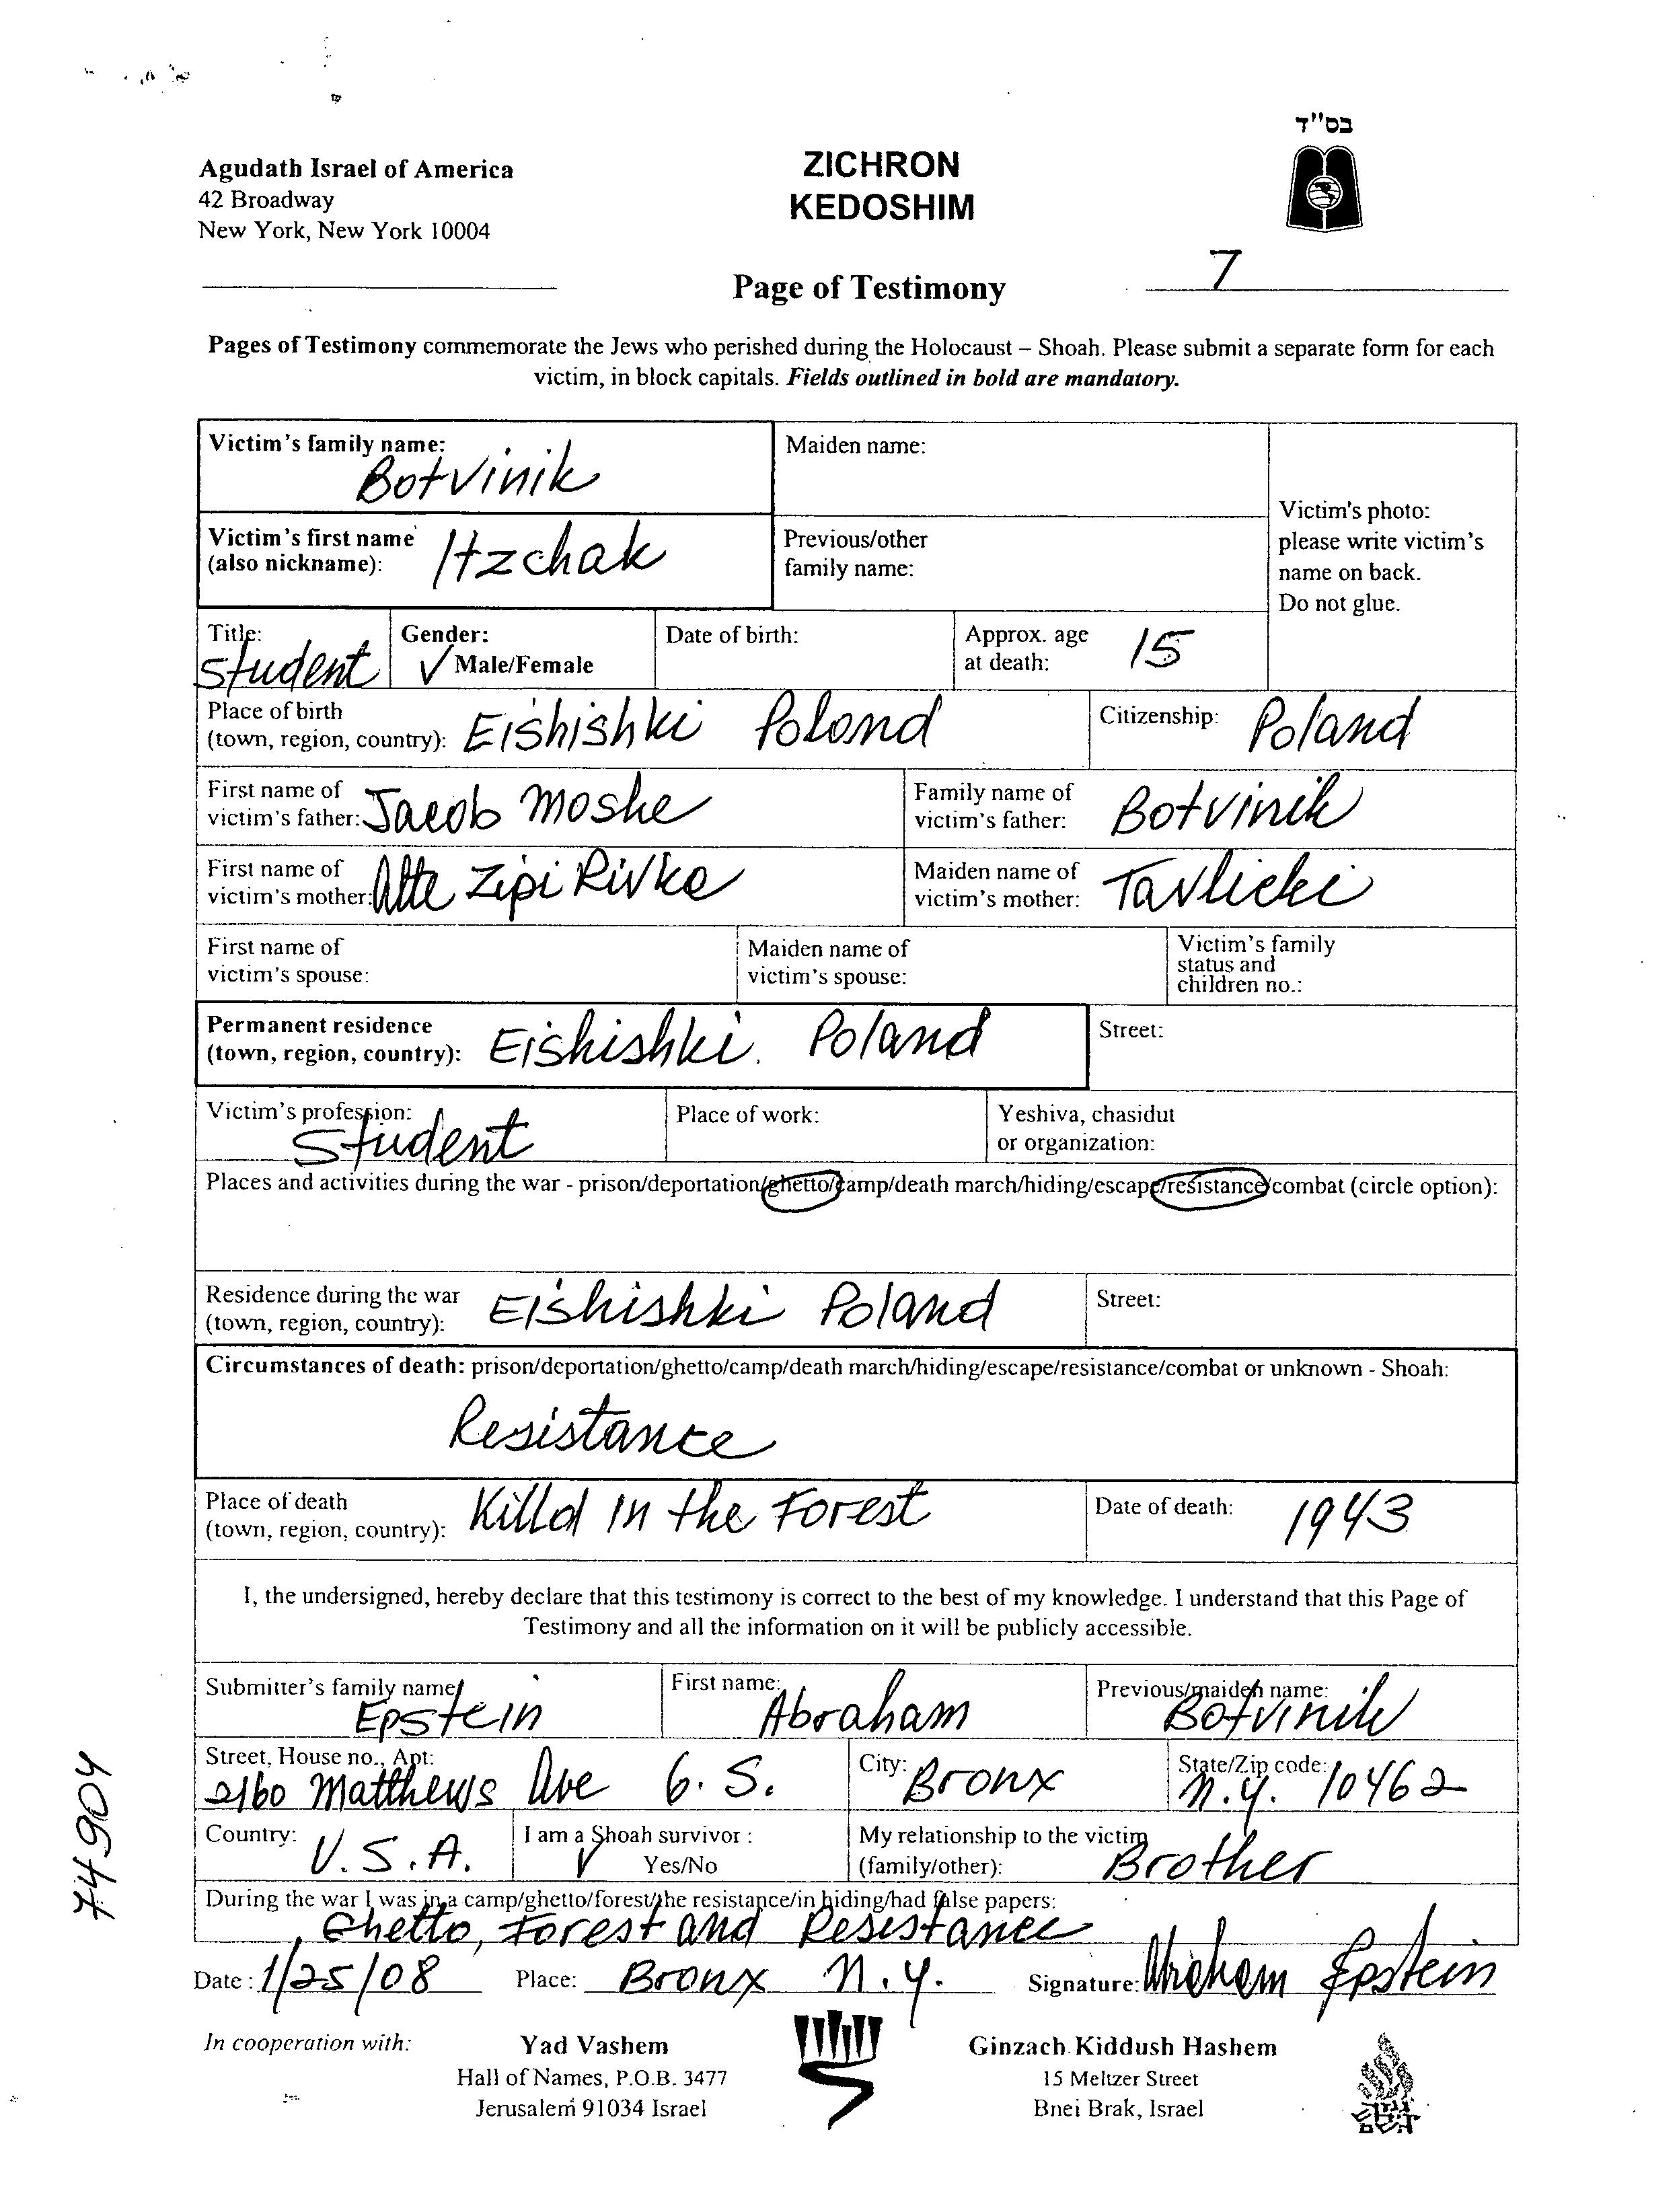 בס"ד
Agudath Israel of America
42 Broadway
New York, New York 10004
ZICHRON
KEDOSHIM
7
Page of Testimony
Pages of Testimony commemorate the Jews who perished during the Holocaust – Shoah. Please submit a separate form for each
victim, in block capitals. Fields outlined in bold are mandatory.
Victim's family name:
Botvinik
Maiden name:
Victim's photo:
please write victim's
name on back.
Do not glue.
Victim's first name
(also nickname): Itzchak
Previous/other
family name:
Title:
Student
Gender:
✓ Male/Female
Date of birth:
Approx. age
at death: 15
Place of birth
(town, region, country): Eishishki Polond
Citizenship: Poland
First name of
victim's father: Jacob Moshe
Family name of
victim's father: Botvinik
First name of
victim's mother: Alte Zipi Rivke
Maiden name of
victim's mother: Tavlicki
First name of
victim's spouse:
Maiden name of
victim's spouse:
Victim's family
status and
children no.:
Permanent residence
(town, region, country): Eishishki. Poland
Street:
Victim's profession:
Student
Place of work:
Yeshiva, chasidut
or organization:
Places and activities during the war - prison/deportation/ghetto/camp/death march/hiding/escape/resistance/combat (circle option):
Residence during the war
(town, region, country): Eishishki Poland
Street:
Circumstances of death: prison/deportation/ghetto/camp/death march/hiding/escape/resistance/combat or unknown - Shoah:
Resistance
Place of death
(town, region, country): Killd in the Forest
Date of death: 1943
I, the undersigned, hereby declare that this testimony is correct to the best of my knowledge. I understand that this Page of
Testimony and all the information on it will be publicly accessible.
Submitter's family name
Epstein
First name:
Abraham
Previous/maiden name:
Botvinik
Street, House no., Apt:
2160 Matthews Ave 6. S.
City: Bronx
State/Zip code:
N.Y. 10462
Country: U.S.A.
I am a Shoah survivor :
✓ Yes/No
My relationship to the victim
(family/other): Brother
During the war I was in a camp/ghetto/forest/the resistance/in hiding/had false papers:
Ghetto, Forest and Resestance
Date : 1/25/08
Place: Bronx N.Y.
Signature: Abraham Epstein
In cooperation with:
Yad Vashem
Hall of Names, P.O.B. 3477
Jerusalem 91034 Israel
Ginzach Kiddush Hashem
15 Meltzer Street
Bnei Brak, Israel
74904